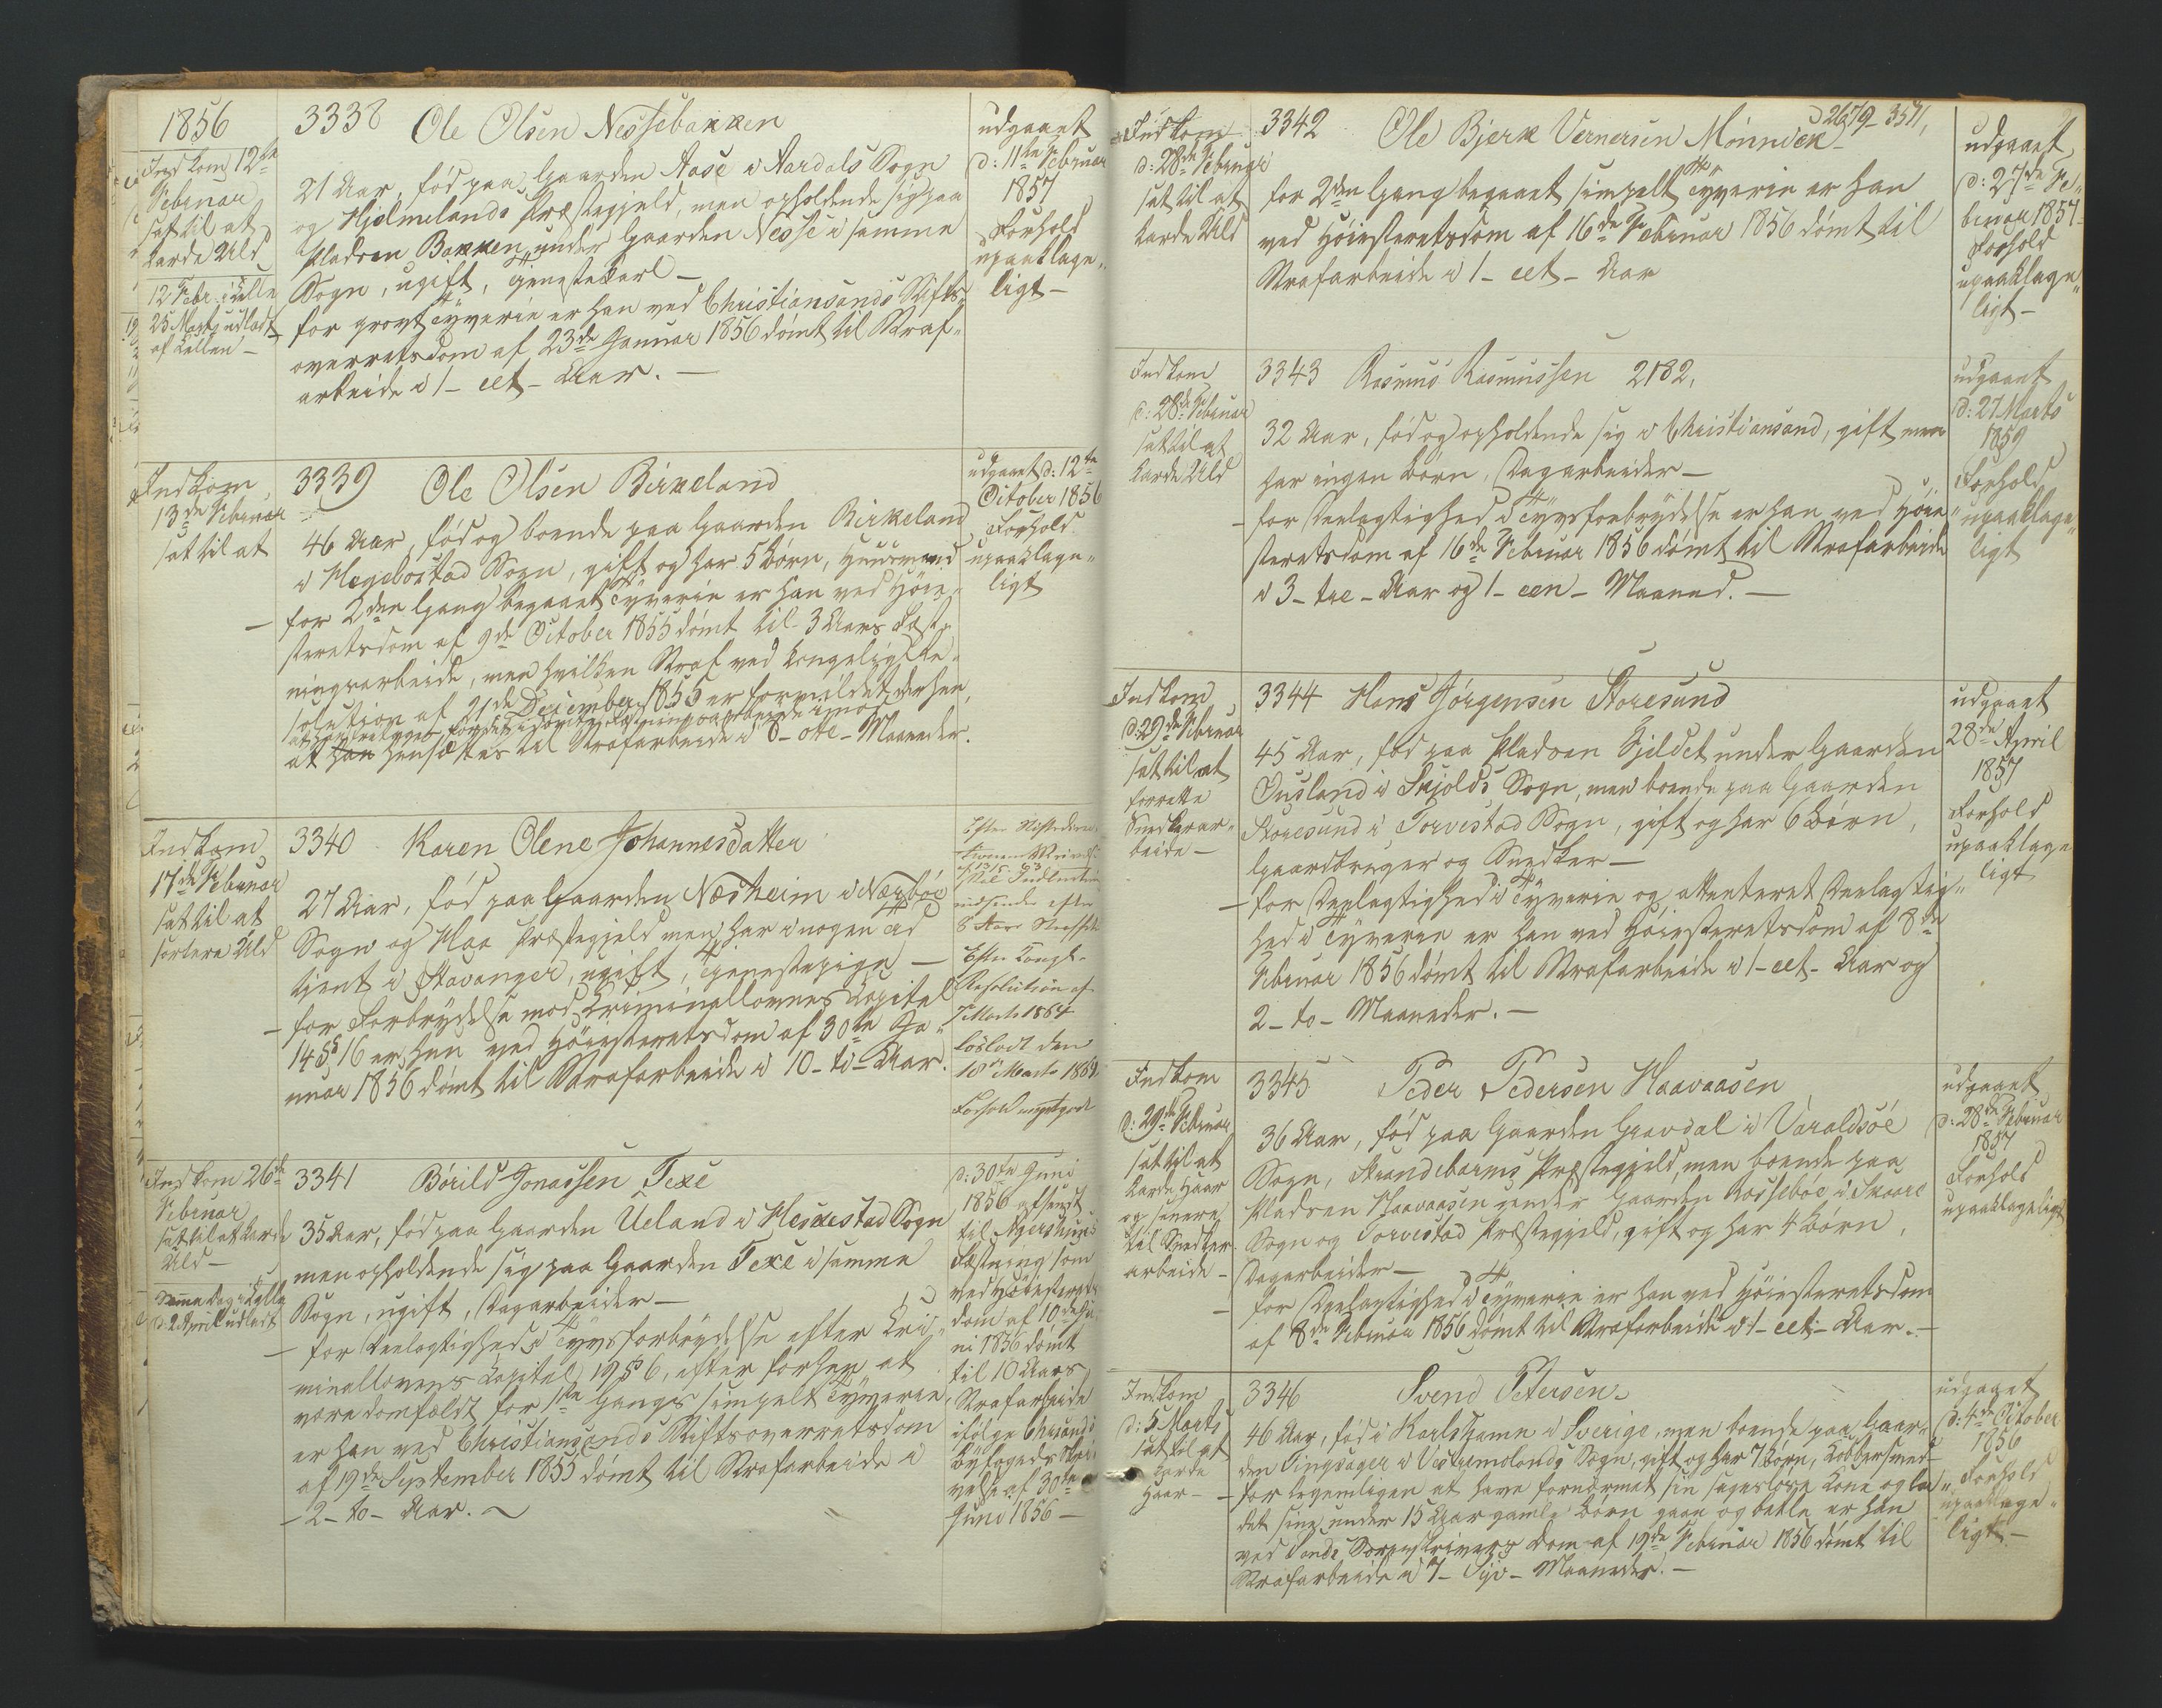 1856
Indkom 12te
Februar
sat til at
karde Uld
12 Febr. i Celle
25 Marts udladt
af Cellen –
3338 Ole Olsen Nessebakken
21 Aar, fød paa Gaarden Aase i Aardals Sogn
og Hjelmelands Præstegjeld, men opholdende sig paa
Pladsen Bakken under Gaarden Nesse i samme
Sogn, ugift, Tjenestekarl –
for grovt Tyverie er han ved Christiansands Stifts„
overretsdom af 23de Januar 1856 dömt til Straf„
arbeide i 1 – eet – Aar. –
udgaaet
d: 11te Februar
1857
Forhold
upaaklage„
ligt –
Indkom
13de Februar
sat til at
3339 Ole Olsen Birkeland
46 Aar, fød og boende paa Gaarden Birkeland
i Hegebostad Sogn, gift og har 5 Börn, Huusmand
– for 2den Gang begaaet Tyverie er han ved Höie„
steretsdom af 9de October 1855 dömt til 3 Aars Fæst„
ningsarbeide, men hvilken Straf ved kongelig Re„
solution af 21de December 1855 er formildet derhen,
at han hensættes til Strafarbeide i 8 – otte – Maaneder.
udgaaet d: 12te
October 1856
Forhold
upaaklage„
ligt
Indkom
17de Februar
sat til at
sortere Uld
3340 Karen Olene Johannesdatter
27 Aar, fød paa Gaarden Næsheim i Nærböe
Sogn og Haa Præstegjeld men har i nogen Tid
tjent i Stavanger, ugift, Tjenestepige –
– for Forbrydelse mod Criminallovens Capitel
14 §§ 16 er hun ved Höiesteretsdom af 30te Ja„
nuar 1856 dömt til Strafarbeide i 10 – ti – Aar.
efter
8 Aars
Efter Kongl.
Resolution af
7 Marts 1864
løsladt den
18de Marts 1864
Forhold meget godt
Indkom 26de
Februar
sat til at karde
Uld –
Samme Dag i Celle
d: 2 April udladt
3341 Börild Jonassen Texe
35 Aar, fød paa Gaarden Ueland i Heskestad Sogn
men opholdende sig paa Gaarden Texe i samme
Sogn, ugift, Dagarbeider –
– for Deelagtighed i Tyvsforbrydelse efter Cri„
minallovens Capitel 19 § 6, efter forhen at
være domfældt for 1ste Gangs simpelt Tyverie,
er han ved Christiansands Stiftsoverretsdom
af 19de September 1855 dömt til Strafarbeide i
– 2 – to – Aar. ~
d: 30te Juni
1856 afsendt
til Agershuus
Fæstning som
ved Höiesterets
dom af 10de Ju„
ni 1856 dömt
til 10 Aars
Strafarbeide
ifølge Chrsands
Byfogeds Skri„
velse af 30te
Juni 1856 –
Indkom
d: 28de Februar
sat til at
karde Uld
3342 Ole Bjerk Vernersen Mönnick – 2679 – 3571,
for 2den Gang begaaet simpelt Tyverie er han
ved Höiesteretsdom af 16de Februar 1856 dömt til
Strafarbeide i 1 – eet – Aar
udgaaet
d: 27de Fe„
bruar 1857
Forhold
upaaklage„
ligt –
Indkom
d: 28de Februar
sat til at
karde Uld
3343 Rasmus Rasmussen 2182,
32 Aar, fød og opholdende sig i Christiansand, gift men
har ingen Börn, Dagarbeider –
– for Deelagtighed i Tyvsforbrydelse er han ved Höie„
steretsdom af 16de Februar 1856 dömt til Strafarbeide
i 3 – tre – Aar og 1 – een – Maaned. –
udgaaet
d: 27 Marts
1859
Forhold
upaaklage„
ligt
Indkom
d: 29de Februar
sat til at
forrette
Snedkerar„
beide –
3344 Hans Jörgensen Storesund
45 Aar, fød paa Pladsen Fjeldet under Gaarden
Ousland i Skjolds Sogn, men boende paa Gaarden
Storesund i Torvestad Sogn, gift og har 6 Börn,
Gaardbruger og Snedker –
– for Deelagtighed i Tyverie og attenteret Deelagtig„
hed i Tyverie er han ved Höiesteretsdom af 8de
Februar 1856 dömt til Strafarbeide i 1 – eet – Aar og
2 – to – Maaneder. –
udgaaet
28de April
1857
Forhold
upaaklage
ligt
Indkom
d: 29de Februar
sat til at
karde Haar
og senere
til Snedker
arbeide –
3345 Peder Pedersen Haavaasen
36 Aar, fød paa Gaarden Gravdal i Varaldsöe
Sogn, Strandebarms Præstegjeld, men boende paa
Pladsen Haavaasen under Gaarden Rossebøe i Skaare
Sogn og Torvestad Præstegjeld, gift og har 4 Börn,
Dagarbeider –
– for Deelagtighed i Tyverie er han ved Höiesteretsdom
af 8de Februar 1856 dömt til Strafarbeide i 1 – eet – Aar. –
udgaaet
d: 28de Februar
1857
Forhold
upaaklageligt
Indkom
d: 5 Marts
sat til at
karde
Haar –
3346 Svend Petersen.
46 Aar, fød i Karlshamn i Sverige, men boende paa Gaar„
den Tingsager i Vestremolands Sogn, gift og har 7 Börn, Kobbersmed –
– for legemligen at have fornærmet sin sagesløse Kone og la„
det sine under 15 Aar gamle Börn gaae og betle er han
ved Sands Sorenskrivers Dom af 19de Februar 1856 dömt til
Strafarbeide i 7 – Syv – Maaneder. –
udgaaet
d: 4de October
1856
Forhold
upaaklage„
ligt –